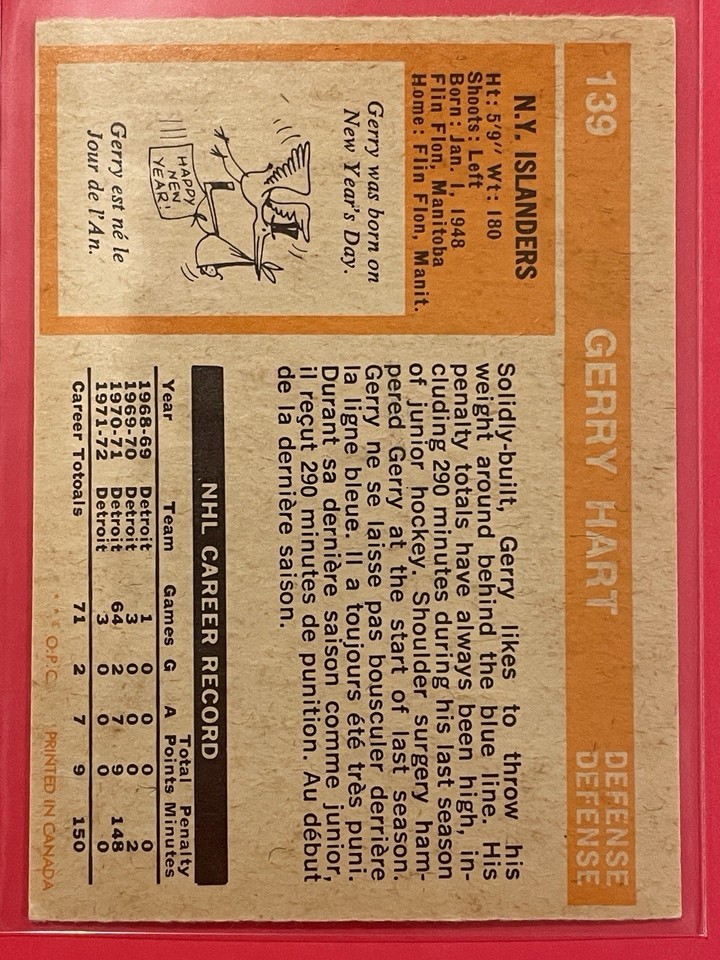 139 GERRY HART DEFENSE
DEFENSE
N.Y. ISLANDERS
Ht: 5'9" Wt: 180
Shoots: Left
Born: Jan. 1, 1948
Flin Flon, Manitoba
Home: Flin Flon, Manit.
Gerry was born on
New Year's Day.
HAPPY
NEW
YEAR!
Gerry est né le
Jour de l'An.
Solidly-built, Gerry likes to throw his
weight around behind the blue line. His
penalty totals have always been high, in-
cluding 290 minutes during his last season
of junior hockey. Shoulder surgery ham-
pered Gerry at the start of last season.
Gerry ne se laisse pas bousculer derrière
la ligne bleue. Il a toujours été très puni.
Durant sa dernière saison comme junior,
il reçut 290 minutes de punition. Au début
de la dernière saison.
NHL CAREER RECORD
Total Penalty
Year Team Games G A Points Minutes
1968-69 Detroit 1 0 0 0 0
1969-70 Detroit 3 0 0 0 2
1970-71 Detroit 64 2 7 9 148
1971-72 Detroit 3 0 0 0 0
Career Totoals 71 2 7 9 150
* * * O.P.C. PRINTED IN CANADA